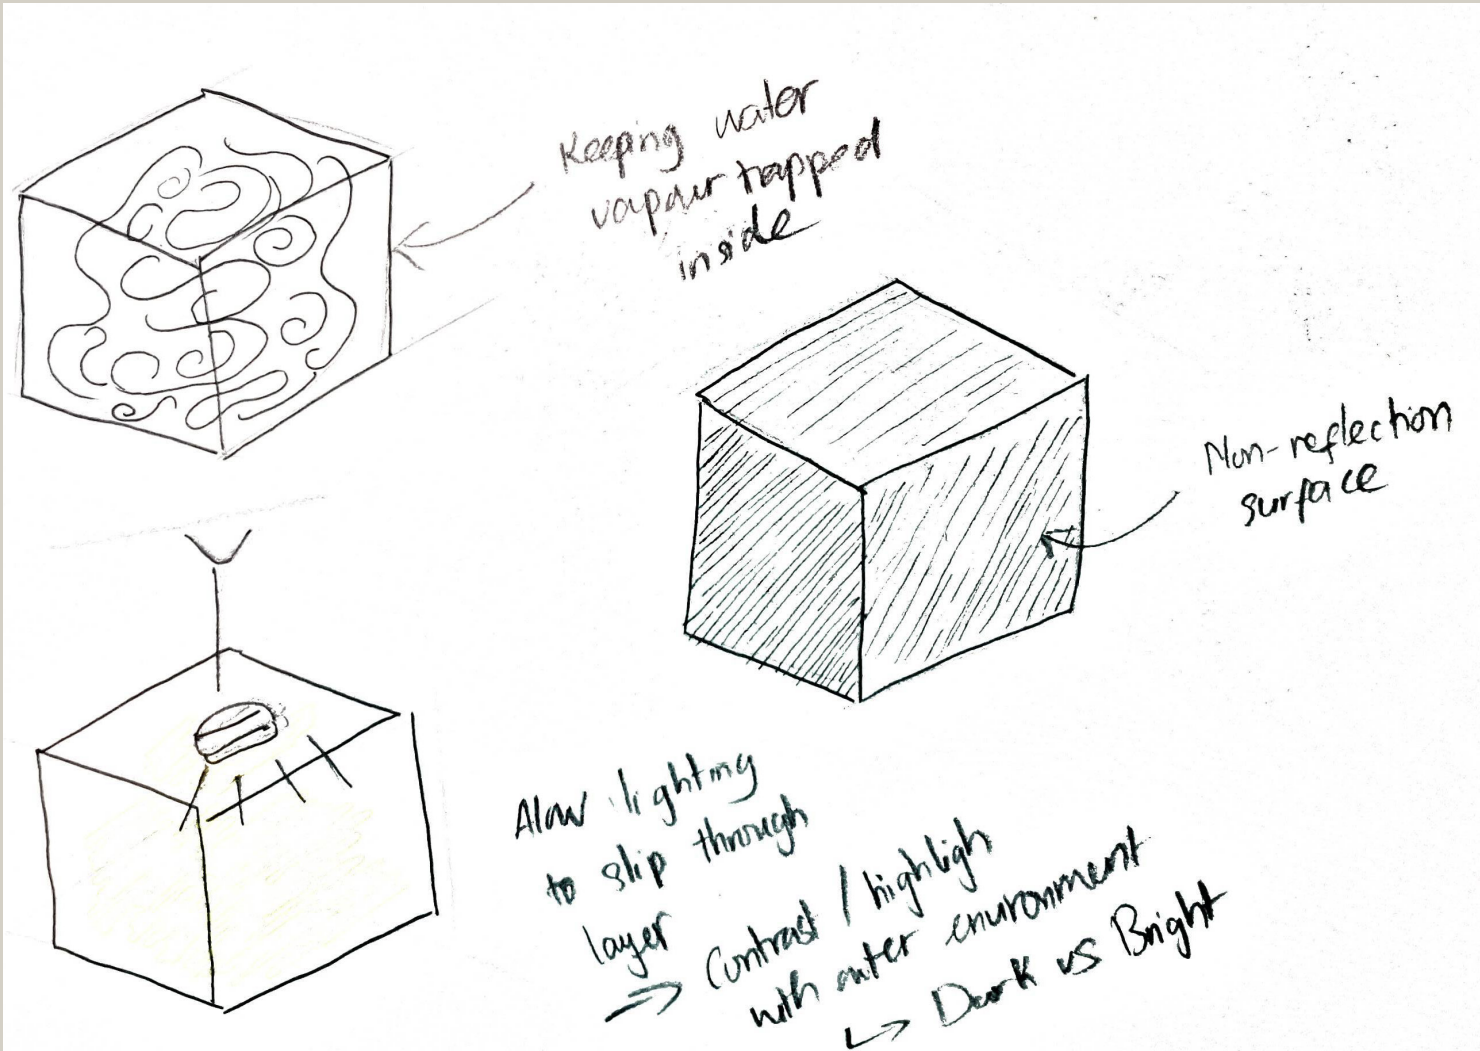 Keeping water
vapour trapped
inside
Non-reflection
surface
Alow lighting
to slip through
layer
⇒ Contrast / highligh
with outer environment
↳ Dark vs Bright